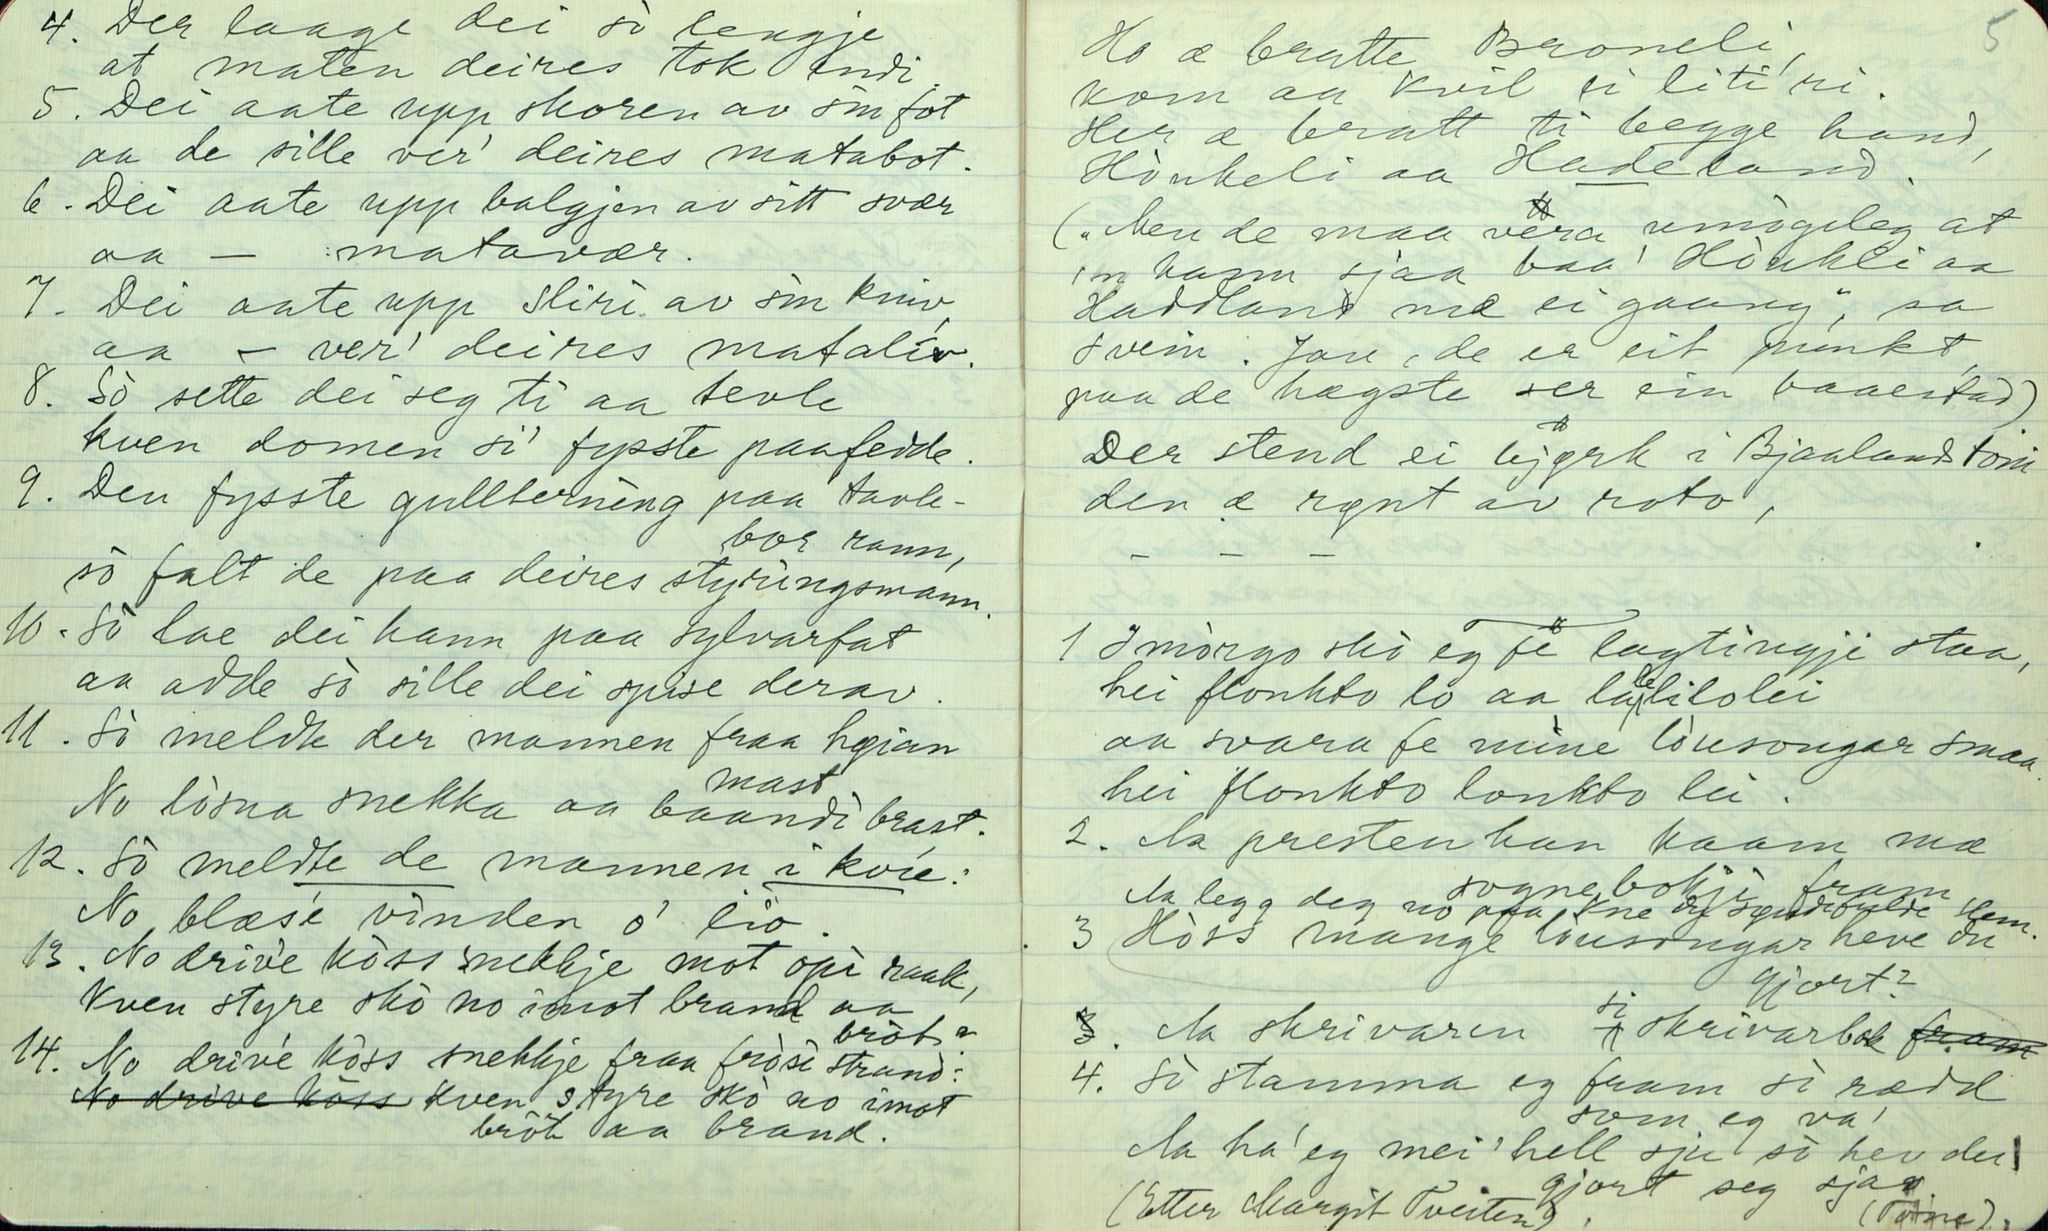 4. Der laage dei sò lengje
at maten deires tok endi,
5. Dei aate upp skoren av sin fot
aa de sille ver' deires matabot.
6. Dei aate upp balgjen av sitt svær
aa — : matavær.
7. Dei aate upp sliri av sin kniv,
aa — ver' deires mataliv.
8. Sò sette dei seg ti aa tevle
kven domen si' fysste paafedde.
9. Den fysste gullterning paa tavle-
bor rann,
sò falt de paa deires styringsmann.
10. Sò lae dei hann paa sylvarfat
aa adde sò sille dei spise derav.
11. Sò meldte der mannen fraa høian
mast
No lòsna snekka aa baandi brast.
12. Sò meldte de mannen i kvie:
No blæs'e vinden o' lio.
13. No drive kòss snekkje mot opi raak,
Kven styre skò no imot brand aa
bròt?
14. No drive kòss snekkje fraa fròsi strand:
No drive kòss kven styre skò no imot
bròt aa brand.
5
Ho æ bratte Broneli,
kom aa kvil si liti ri.
Her æ bratt ti begge hand,
Hònkeli aa Hadeland.
("Men de maa vera umògeleg at
in kann sjaa baa' Hònkli aa
Haddland mæ ei gaang", sa
Svein. Jau, de er eit punkt,
paa de høgste ser ein baaestad)
Der stend ei bjørk i Bjaalandstòni
den æ rønt av roto,
— — —
1 I mòrgo skò eg fe lagtingji staa,
hei flonkto lo aa lalelilolei
aa svara fe mine lòusongar smaa.
hei flonkto lonkto lei.
2. Aa presten han kaam mæ
sognebokji fram
Aa legg deg no paa kne slem.
3 Hòss mange lòusongar heve du
gjort?
3. Aa skrivaren si skrivarbok fram
4. Sò stamma eg fram sò rædd
som eg va'
Aa ha' eg mei' hell sju sò hev du
gjort seg sjav
(Etter Margit Tveiten).